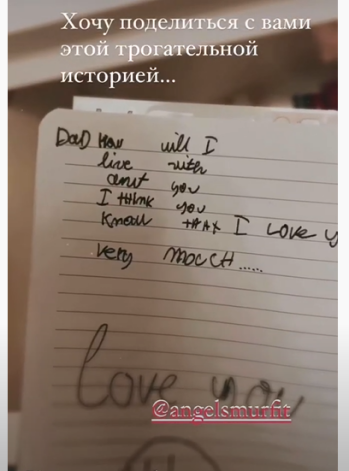 Хочу поделиться с вами
этой трогательной
историей...
DaD How will I
live with
anut you
I think you
know that I Love y
very mocch.....
love you
@angelsmurfit